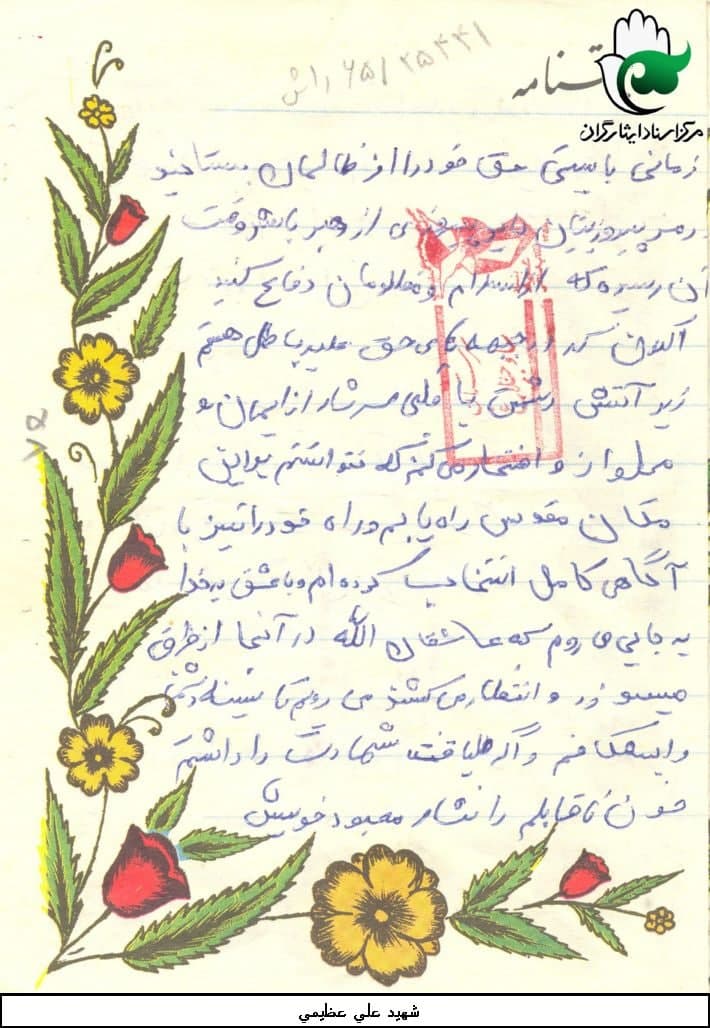 مرکز اسناد ایثارگران
۶۵/۲۵۴۴۱
زمانی بایستی حق خود را از ظالمان بستانیم
رمز پیروزیتان از رهبر باشد وقت
آن رسیده که از اسلام و مظلومان دفاع کنید
اکنون که در جبهه های حق علیه باطل هستم
زیر آتش دشمن با قلبی سرشار از ایمان و
مملو از و افتخار می کنم که توانستم به این
مکان مقدس راه یابم و راه خود را نیز با
آگاهی کامل انتخاب کرده ام و با عشق به خدا
به جایی می روم که عاشقان الله در آنجا از فراق
میسوزد و انتظار می کشند می روم تا سینه دشمن
را بشکافم و اگر لیاقت شهادت را داشتم
خون ناقابلم را نثار معبود خویش
۷۵
شهيد علي عظيمي